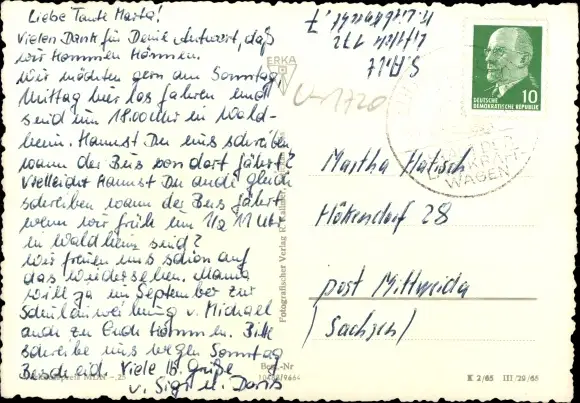 Liebe Tante Marta!
Vielen Dank für Deine Antwort, daß
wir kommen können.
Wir möchten gern am Sonntag
Mittag hier los fahren und
sind um 18.00 Uhr in Wald-
heim. Kannst Du uns schreiben
wann der Bus von dort fährt?
Vielleicht kannst Du auch gleich
schreiben wann der Bus fährt
wenn wir früh um 1/2 11 Uhr
in Waldheim sind?
Wir freuen uns schon auf
das Wiedersehen. Mama
will ja im September zur
Schuleinweihung v. Michael
auch zu Euch kommen. Bitte
schreibe uns wegen Sonntag
Bescheid. Viele lb. Grüße
v. Sigi u. Doris
ERKA
Fotografischer Verlag
Best.-Nr
DEUTSCHE
DEMOKRATISCHE REPUBLIK
10
KRAFT-
WAGEN
Martha Hatisch
Höckendorf 28
post Mittweida
(Sachsen)
K 2/65 III/29/65